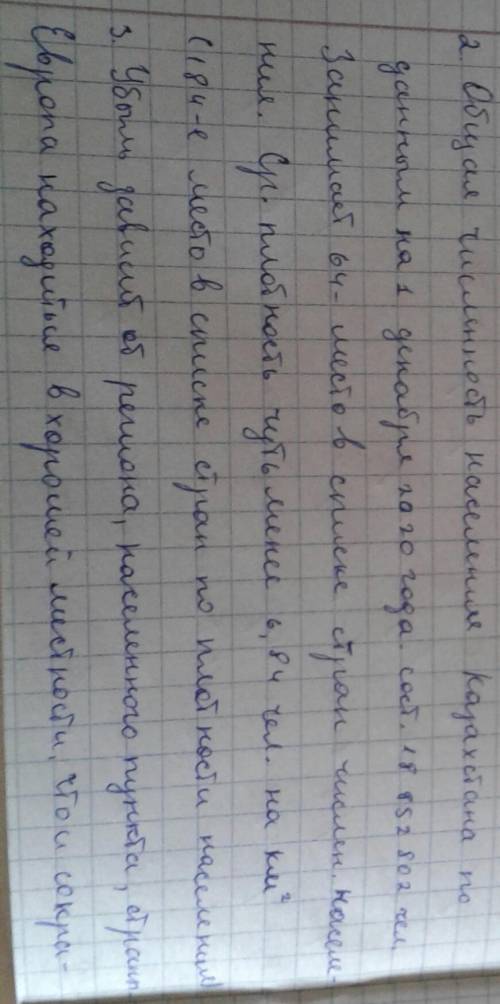 2. Общая численность населения Казахстана по
данным на 1 декабря 2020 года. сост. 18 852 802 чел
Занимает 64- место в списке стран числен. населе-
ния. Ср. плотность чуть менее 6,84 чел. на км²
(184-е место в списке стран по плотности населения)
3. Убыль зависит от региона, населенного пункта, страны.
Европа находиться в хорошей местности, что и сокра-